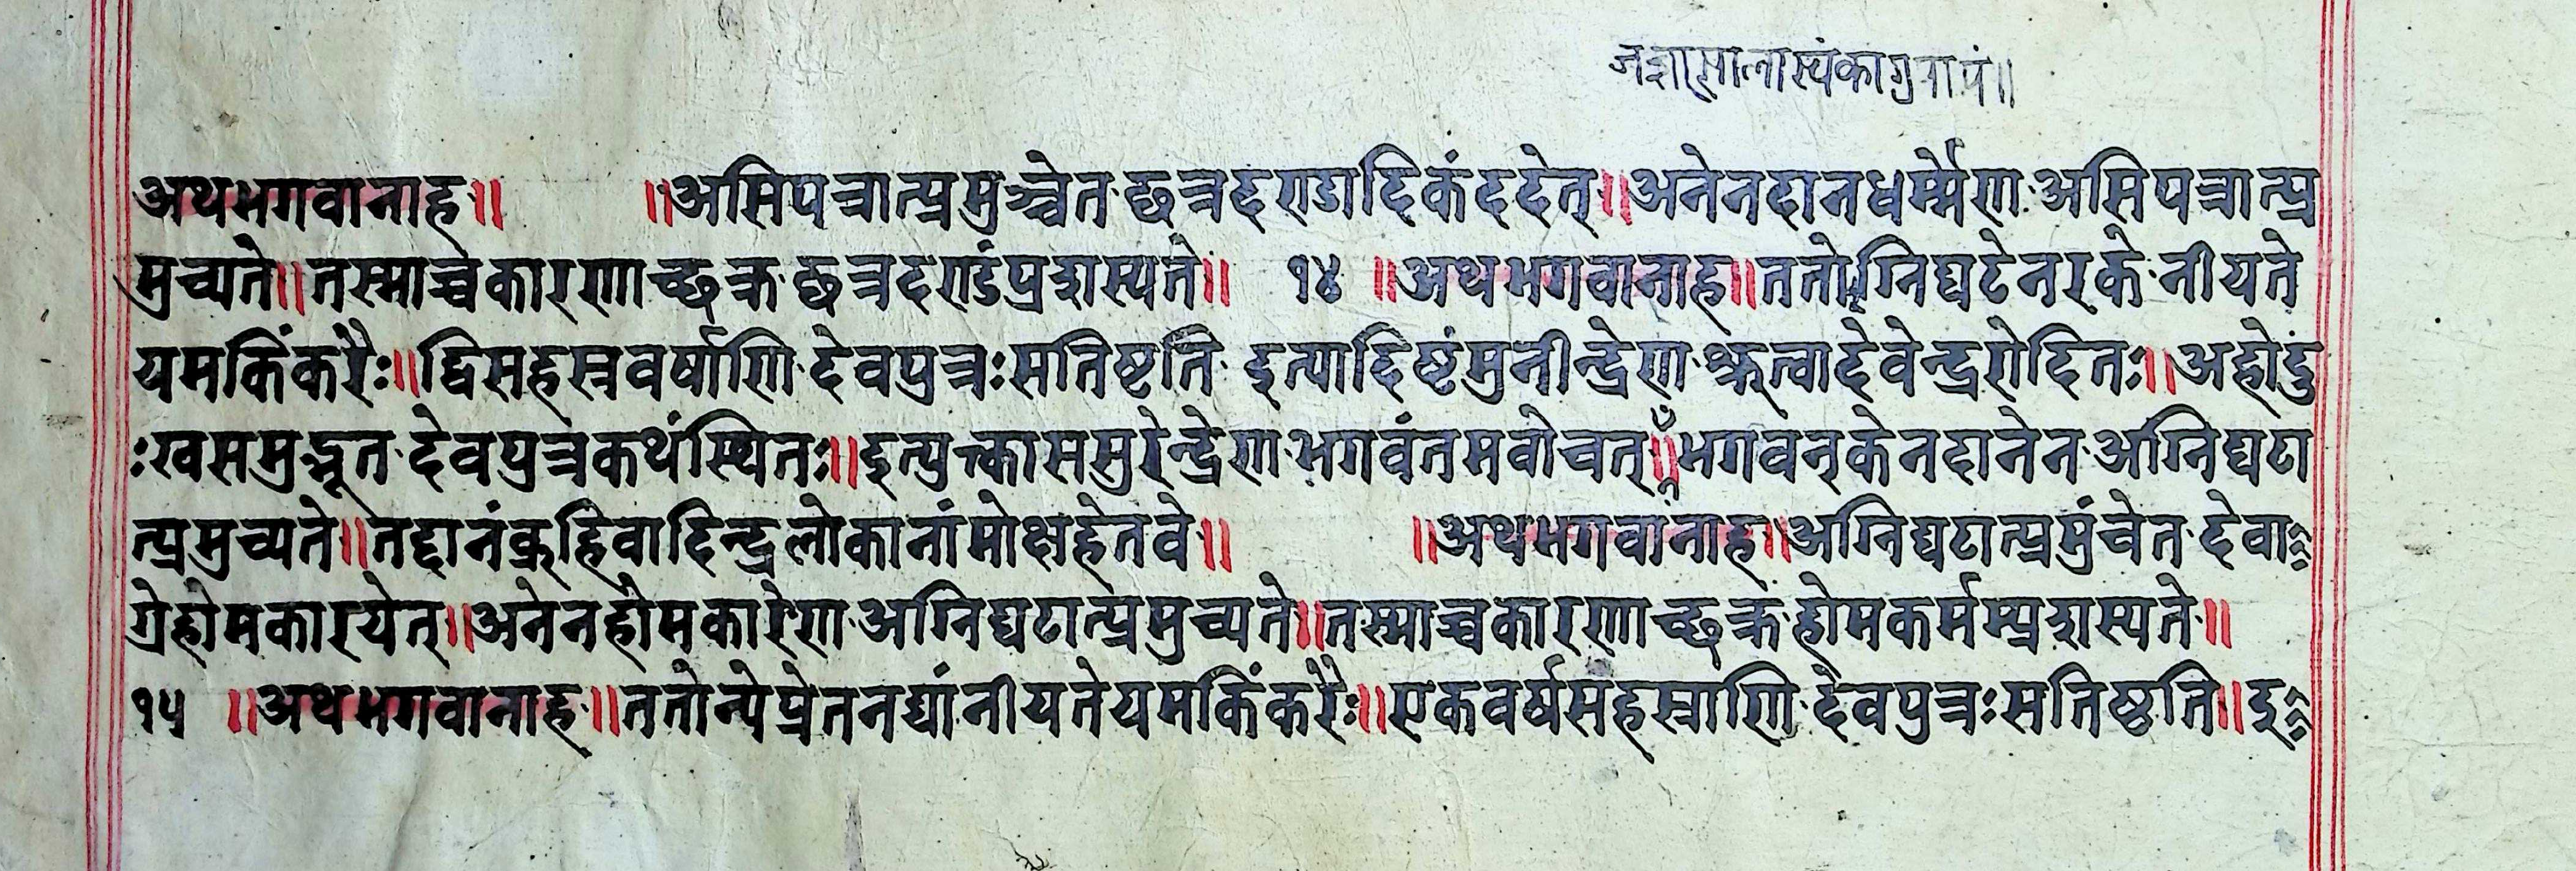 अथभगवानाह॥ ॥असिपत्रात्प्रमुञ्चेत छत्रदण्डादिकंददेत्॥अनेनदानधर्म्मेण असिपत्रात्प्र
मुच्यते॥तस्माच्चकारणाच्छक्र छत्रदण्डंप्रदास्यते॥ १४ ॥अथभगवानाह॥ततोग्निघटेनरके नीयते
यमकिंकरैः॥द्विसहस्रवर्षाणि देवपुत्रःसतिष्टति इत्यादिष्टंमुनीन्द्रेण श्रुत्वादेवेन्द्ररोदितः॥अहोदु
ःखसमुद्भूत देवपुत्रकथंस्थितः॥इत्युक्त्काससुरेन्द्रेण भगवंतमवोचत्॥भगवन्केनदानेन अग्निघटा
त्प्रमुच्यते॥तद्दानंब्रूहिवादिन्द्रलोकानांमोक्षहेतवे॥ ॥अथभगवानाह॥अग्निघटात्प्रमुंचेत देवा
ग्रेहोमकारयेत्॥अनेनहोमकारेण अग्निघटात्प्रमुच्यते॥तस्माच्चकारणाच्छक्रं होमकर्मम्प्रदास्यते॥
१५ ॥अथभगवानाह॥ततोन्येप्रेतनद्यांनीयतेयमकिंकरैः॥एकवर्षसहस्राणि देवपुत्रःसतिष्ठति॥इ